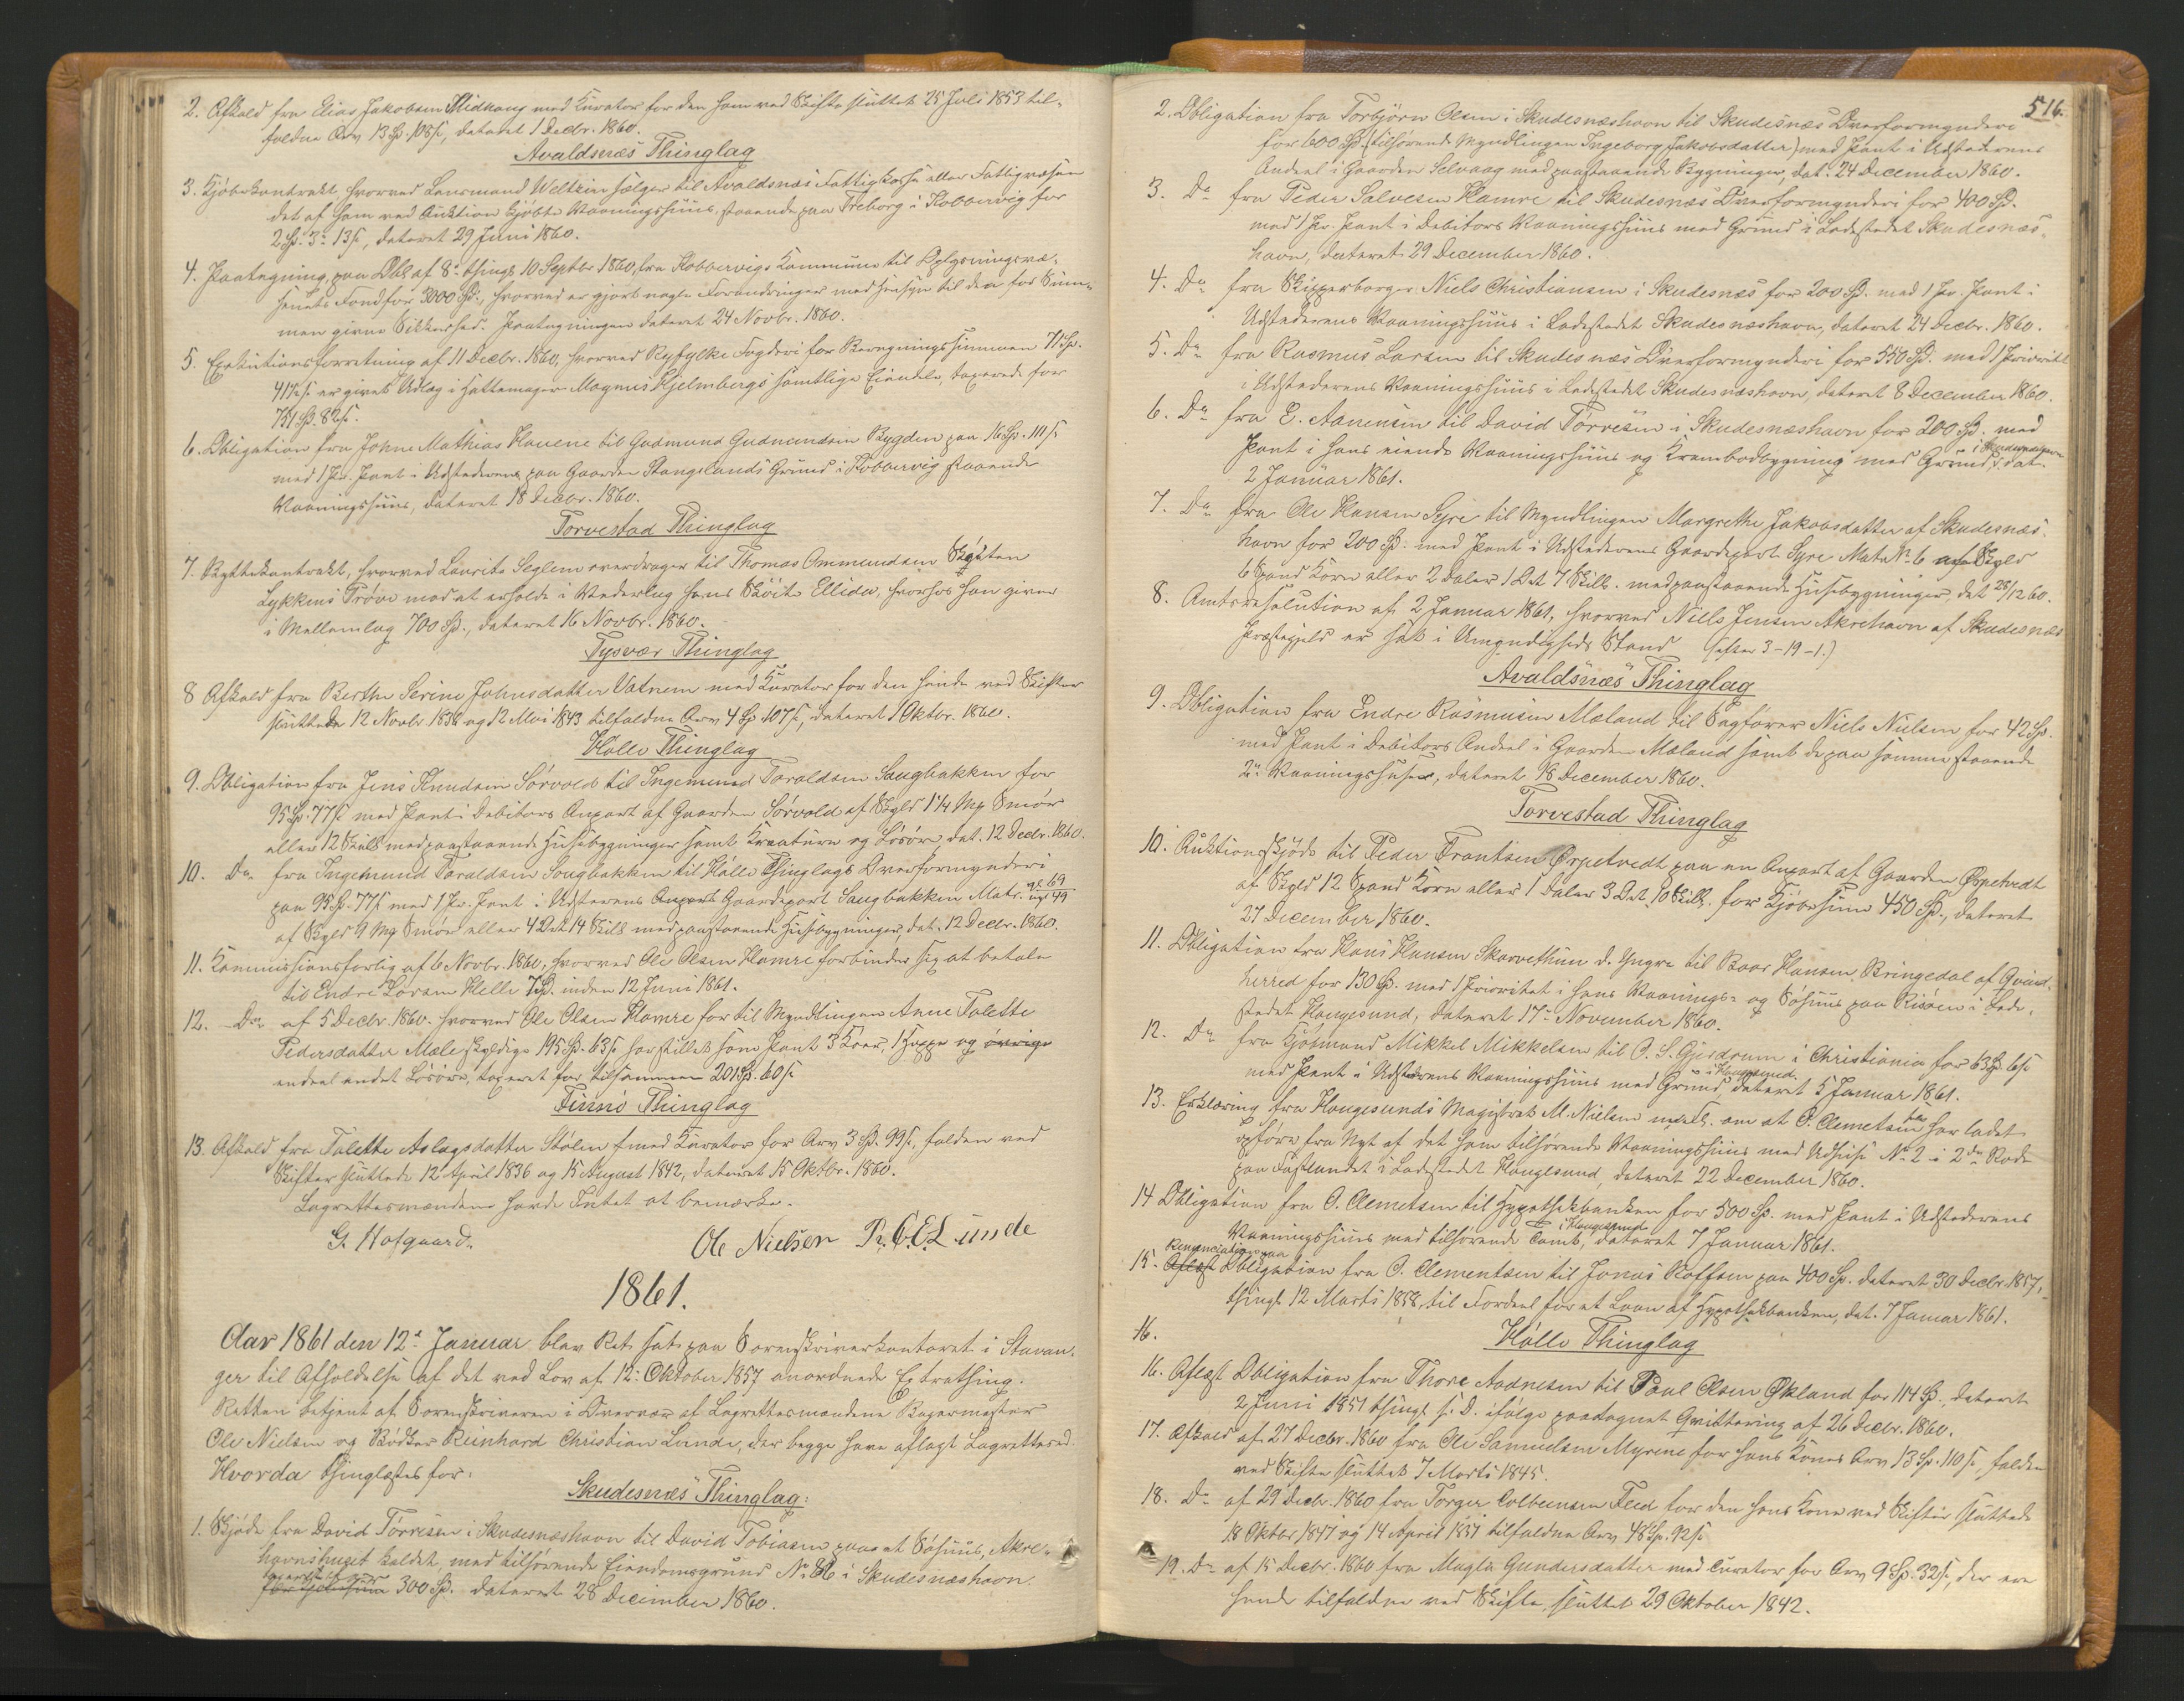 2. Afkald fra Elias Jakobsen Midhaug med Kurator for den ham ved Skifte sluttet 25 Juli 1853 til-
faldne Arv 13 Sp. 108 ß, dateret 1 Decbr. 1860.
Avaldsnæs Thinglag
3. Kjøbekontrakt, hvorved Lensmand Weltzin sælger til Avaldsnæs Fattigkasse eller Fattigvæsen
det af ham ved Auktion kjøbte Vaaningshuus, staaende paa Treborg i Kobbervig for
2 Sp. 3 13 ß, dateret 29 Juni 1860.
4. Paategning paa Obl. af 8 thingl. 10 Septbr. 1860, fra Kobbervigs Kommune til Oplysningsvæ-
senets Fond for 3000 Spd., hvorved er gjort nogle Forandringer med Hensyn til den for Sum-
men givne Sikkerhed. Paategningen dateret 24 Novbr. 1860.
5. Exekutionsforretning af 11 Decbr. 1860, hvorved Ryfylke Fogderi for Beregningssummen 71 Sp.
41½ ß er givet Udlæg i Hattemager Magnus Hjelmbergs samtlige Eiendele, taxerede for
751 Sp. 82 ß.
6. Obligation fra Johne Mathias Hauene til Gudmund Gudmundsen Bygden paa 16 Sp. 111 ß
med 1 Pr. Pant i Udstederens paa Gaarden Stangelands Grund i Kobbervig staaende
Vaaningshuus, dateret 18 Decbr. 1860.
Torvestad Thinglag
7. Byttekontrakt, hvorved Laurits Seglem overdrager til Thomas Ommundsen Skøiten
Lykkens Prøve mod at erholde i Vederlag hans Skøite Ellida, hvorhos han giver
i Mellemlag 700 Sp., dateret 16 Novbr. 1860.
Tysvær Thinglag
8 Afkald fra Berthe Serine Johnsdatter Vatnem med Kurator for den hende ved Skifter
sluttede 12 Novbr 1838 og 12 Mai 1843 tilfaldne Arv 4 Sp 107 ß, dateret 1 Oktbr. 1860.
Hålle Thinglag
9. Obligation fra Jens Knudsen Sørvold til Ingemund Taraldsen Saugbakken for
95 Sp. 77 ß med Pant i Debitors Anpart af Gaarden Sørvold af Skyld 1¼ Mg Smør
eller 12 Skill med paastaaende Husebygninger samt Kreature og Løsøre, dat. 12 Decbr. 1860.
10. Do fra Ingemund Taraldsen Saugbakken til Hålle Thinglags Overformynderi
paa 95 Sp. 77 ß med 1 Pr. Pant i Udsterens Anpart Gaardepart Saugbakken Matr. gl. 69 ny 49
af Skyld 9 Mg Smør eller 4 Ort 14 Skill med paastaaende Husebygninger, dat. 12 Decbr. 1860.
11. Kommissionsforlig af 6 Novbr. 1860, hvorved Ole Olsen Hamre forbinder sig at betale
til Endre Larsen Helle 7 Sp. inden 12 Juni 1861.
12. Do af 5 Decbr. 1860. hvorved Ole Olsen Hamre for til Myndlingen Anne Talette
Pedersdatter Mæle skyldige 195 Sp. 63 ß har stillet som Pant 3 Kjøer, 1 Hoppe og øvrige
endeel andet Løsøre, taxeret for tilsammen 201 Sp. 60 ß
Finnö Thinglag
13. Afkald fra Talette Aslagsdatter Stølen med Kurator for Arv 3 Sp. 99 ß, falden ved
Skifter sluttede 12 April 1836 og 15 August 1842, dateret 15 Oktbr. 1860.
Lagrettesmændene havde Intet at bemærke.
G. Hofgaard. Ole Nielsen R. C. E Lunde
1861.
Aar 1861 den 12te Januar blev Ret sat paa Sorenskriverkontoret i Stavan-
ger til Afholdelse af det ved Lov af 12: Oktober 1857 anordnede Extrathing.
Retten betjent af Sorenskriveren i Overvær af Lagrettesmændene Bagermester
Ole Nielsen og Bødker Reinhard Christian Lunde, der begge have aflagt Lagrettesed.
Hvorda thinglæstes for:
Skudesnæs Thinglag:
1. Skjøde fra David Tørresen i Skudesnæshavn til David Tobiassen paa et Søhuus, Akre-
havnshuset kaldet, med tilhørende Eiendomsgrund No 86 i Skudesnæshavn.
for Kjøbesum 300 Sp. dateret 28 December 1860.
516.
2. Obligation fra Torbjörn Olsen i Skudesnæshavn til Skudesnæs Overformynderi
for 600 Sp. (tilhørende Myndlingen Ingeborg Jakobsdatter) med Pant i Udstederens
Andeel i Gaarden Selvaag med paastaaende Bygninger, dat. 24 December 1860.
3. Do fra Peder Salvesen Hamre til Skudesnæs Overformynderi for 400 Sp.
med 1 Pr. Pant i Debitors Vaaningshuus med Grund i Ladestedet Skudesnæs-
havn, dateret 29 December 1860.
4. Do fra Skipperborger Niels Christiansen i Skudesnæs for 200 Sp. med 1 Pr. Pant i
Udstederens Vaaningshuus i Ladestedet Skudesnæshavn, dateret 24 Decbr. 1860.
5. Do fra Rasmus Larsen til Skudesnæs Overformynderi for 550 Sp. med 1 Prioritet
i Udstederens Vaaningshuus i Ladestedet Skudesnæshavn, dateret 8 December 1860.
6. Do fra E. Aanensen til David Tørresen i Skudesnæshavn for 200 Sp. med
Pant i hans eiende Vaaningshuus og Krambodbygning med Grund i Skudesnæshavn, dat.
2 Januar 1861.
7. Do fra Ole Hansen Syre til Myndlingen Margrethe Jakobsdatter af Skudesnæs-
havn for 200 Sp. med Pant i Udstederens Gaardepart Syre Matr No 6 af Skyld
6 Spand Korn eller 2 Daler 1 Ort 7 Skill. med paastaaende Husebygninger, dat 28/12 60.
8. Amtsresolution af 2 Januar 1861, hvorved Niels Jensen Akrehavn af Skudesnæs
Præstegjeld er sat i Umyndigheds Stand (efter 3-19-1.)
Avaldsnæs Thinglag
9. Obligation fra Endre Rasmusen Mæland til Sagfører Niels Nielsen for 42 Sp.
med Pant i Debitors Andeel i Gaarden Mæland samt de paa samme staaende
2de Vaaningshuse, dateret 18 December 1860.
Torvestad Thinglag
10. Auktionsskjøde til Peder Frantsen Ørpetvedt paa en Anpart af Gaarden Ørpetvedt
af Skyld 12 Spand Korn eller 1 Daler 3 Ort 10 Skill. for Kjøbesum 450 Sp., dateret
27 December 1860.
11. Obligation fra Hans Hansen Skarvethun d. Yngre til Baar Hansen Bringedal af Qvind-
herred for 130 Sp. med 1 Prioritet i hans Vaanings- og Søhuus paa Risøen i Lade-
stedet Haugesund, dateret 17de November 1860.
12. Do fra Kjøbmand Mikkel Mikkelsen til O. S. Gjerdrum i Christiania for 63 Sp. 6 ß
med Pant i Udstederens Vaaningshuus med Grund i Haugesund dateret 5 Januar 1861.
13. Erklæring fra Haugesunds Magistrat M. Nielsen om at O. Clemetsen har ladet
opføre fra Nyt af det ham tilhørende Vaaningshuus med Udhuse No 2 i 2den Rode
paa Fastlandet i Ladestedet Haugesund, dateret 22 December 1860.
14 Obligation fra O. Clemetsen til Hypothekbanken for 500 Sp. med Pant i Udstederens
Vaaningshuus med tilhørende Tomt i Haugesund, dateret 7 Januar 1861.
15. Aflæst Renunciation paa Obligation fra O. Clementsen til Jonas Roffsen paa 400 Sp. dateret 30 Decbr. 1857,
thingl. 12 Marts 1858, til Fordeel for et Laan af Hypothekbanken, dat. 7 Januar 1861.
16.
Hålle Thinglag
16. Aflæst Obligation fra Thore Aadnesen til Poul Olsen Økland for 114 Sp., dateret
2 Juni 1851 thingl. s. D. ifølge paategnet Qvittering af 26 Decbr. 1860.
17. Afkald af 27 Decbr. 1860 fra Ole Samuelsen Myrene for hans Kones Arv 13 Sp. 110 ß, falden
ved Skifte sluttet 7 Marts 1845.
18. Do af 29 Decbr. 1860 fra Torger Colbensen Feed for den hans Kone ved Skifter sluttede
18 Oktbr 1847 og 14 April 1857 tilfaldne Arv 48 Sp. 92 ß
19. Do af 15 Decbr. 1860 fra Magla Gundersdatter med Curator for Arv 9 Sp. 32 ß, der ere
hende tilfaldne ved Skifte, sluttet 29 Oktober 1842.